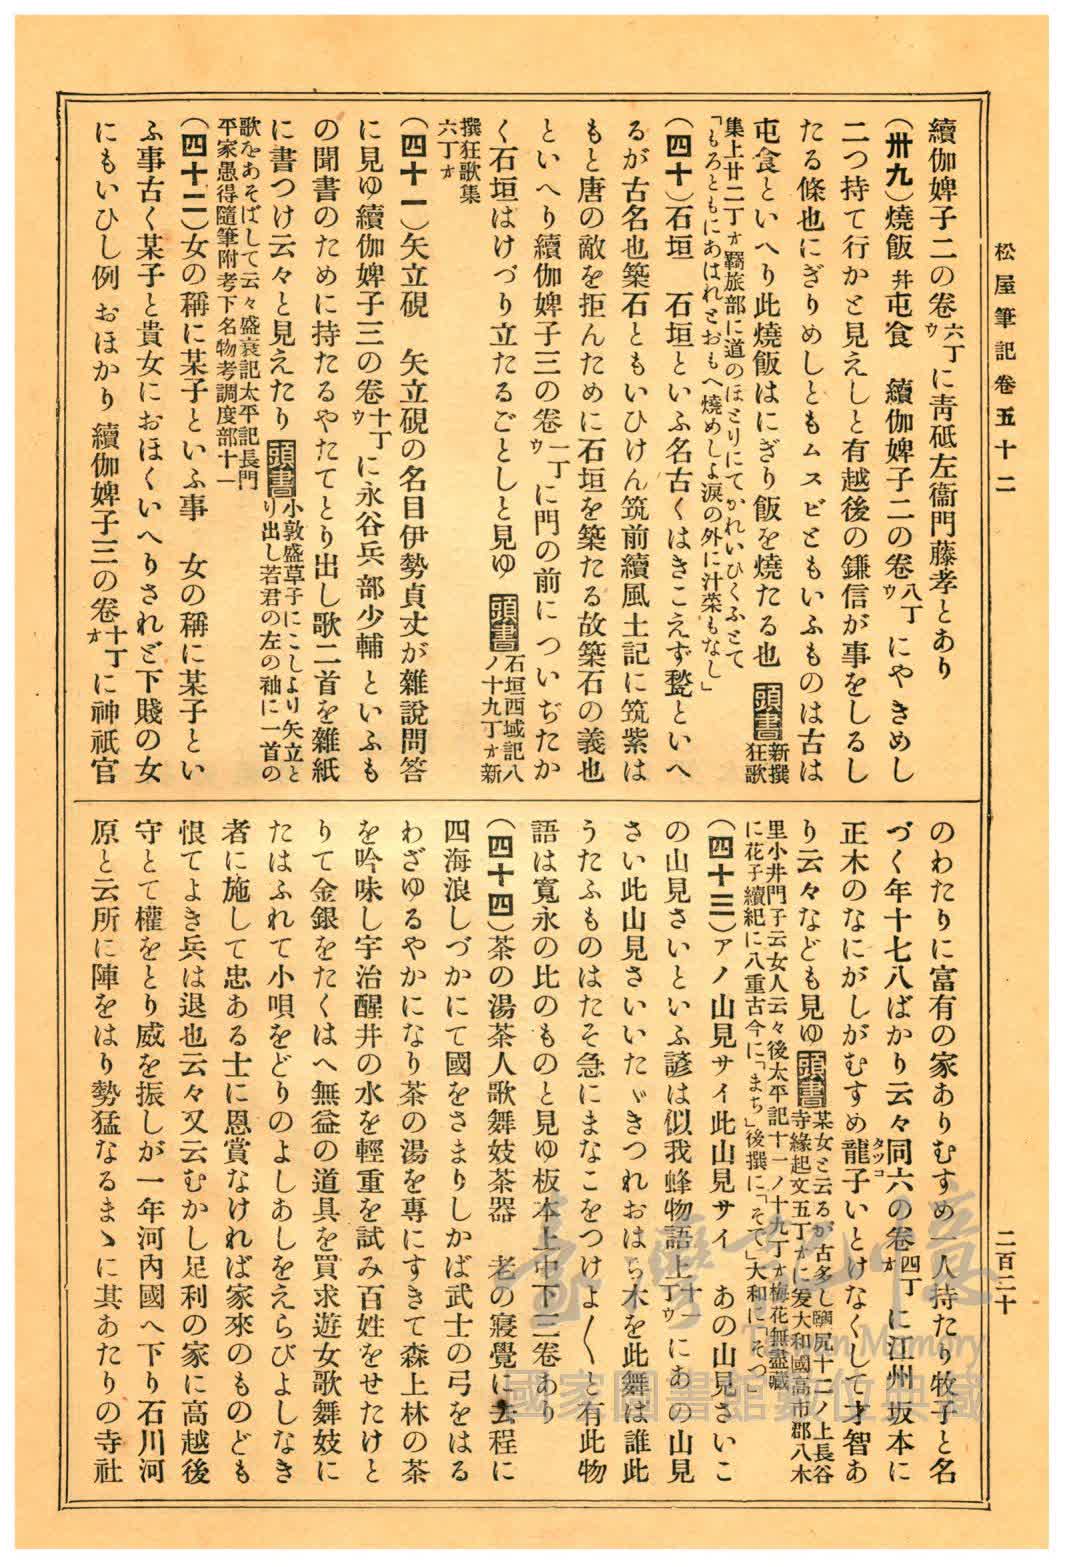 松屋筆記卷五十二
續伽婢子二の卷六丁ウに靑砥左衞門藤孝とあり
(卅九)燒飯幷屯食　續伽婢子二の卷八丁ウにやきめし
二つ持て行かと見えしと有越後の鎌信が事をしるし
たる條也にぎりめしともムスビともいふものは古は
屯食といへり此燒飯はにぎり飯を燒たる也頭書新撰狂歌
集上廿二丁オ羇旅部に道のほとりにてかれいひくふとて
「もろともにあはれとおもへ燒めしよ涙の外に汁菜もなし」
(四十)石垣　石垣といふ名古くはきこえず甃といへ
るが古名也築石ともいひけん筑前續風土記に筑紫は
もと唐の敵を拒んために石垣を築たる故築石の義也
といへり續伽婢子三の卷一丁ウに門の前についぢたか
く石垣はけづり立たるごとしと見ゆ頭書石垣西域記八ノ十九丁オ新
撰狂歌集六丁オ
(四十一)矢立硯　矢立硯の名目伊勢貞丈が雜説問答
に見ゆ續伽婢子三の卷十丁ウに永谷兵部少輔といふも
の聞書のために持たるやたてとり出し歌二首を雜紙
に書つけ云々と見えたり頭書小敦盛草子にこしより矢立とり出し若君の左の袖に一首の
歌をあそばして云々盛衰記太平記長門
平家愚得隨筆附考下名物考調度部十一
(四十二)女の稱に某子といふ事　女の稱に某子とい
ふ事古く某子と貴女におほくいへりされど下賤の女
にもいひし例おほかり續伽婢子三の卷十丁オに神祇官
のわたりに富有の家ありむすめ一人持たり牧子と名
づく年十七八ばかり云々同六の卷四丁オに江州坂本に
正木のなにがしがむすめ龍子タツコいとけなくして才智あ
り云々なども見ゆ頭書某女と云るが古多し鸊尻十二ノ上長谷寺緣起文五丁オに爰大和國高市郡八木
里小井門子云女人云々後太平記十一ノ十九丁オ梅花無盡藏
に花子續紀に八重古今に「まち」後撰に「そて」大和に「そつ」
(四十三)アノ山見サイ此山見サイ　あの山見さいこ
の山見さいといふ諺は似我蜂物語上十丁ウにあの山見
さい此山見さいいたゞきつれおはら木を此舞は誰此
うたふものはたそ急にまなこをつけよ〱と有此物
語は寛永の比のものと見ゆ板本上中下三卷あり
(四十四)茶の湯茶人歌舞妓茶器　老の寢覺に去程に
四海浪しづかにて國をさまりしかば武士の弓をはる
わざゆるやかになり茶の湯を專にすきて森上林の茶
を吟味し宇治醒井の水を輕重を試み百姓をせたけと
りて金銀をたくはへ無益の道具を買求遊女歌舞妓に
たはふれて小唄をどりのよしあしをえらびよしなき
者に施して忠ある士に恩賞なければ家來のものども
恨てよき兵は退也云々又云むかし足利の家に高越後
守とて權をとり威を振しが一年河內國へ下り石川河
原と云所に陣をはり勢猛なるまゝに其あたりの寺社
二百二十
臺灣記憶
Taiwan Memory
國家圖書館數位典藏